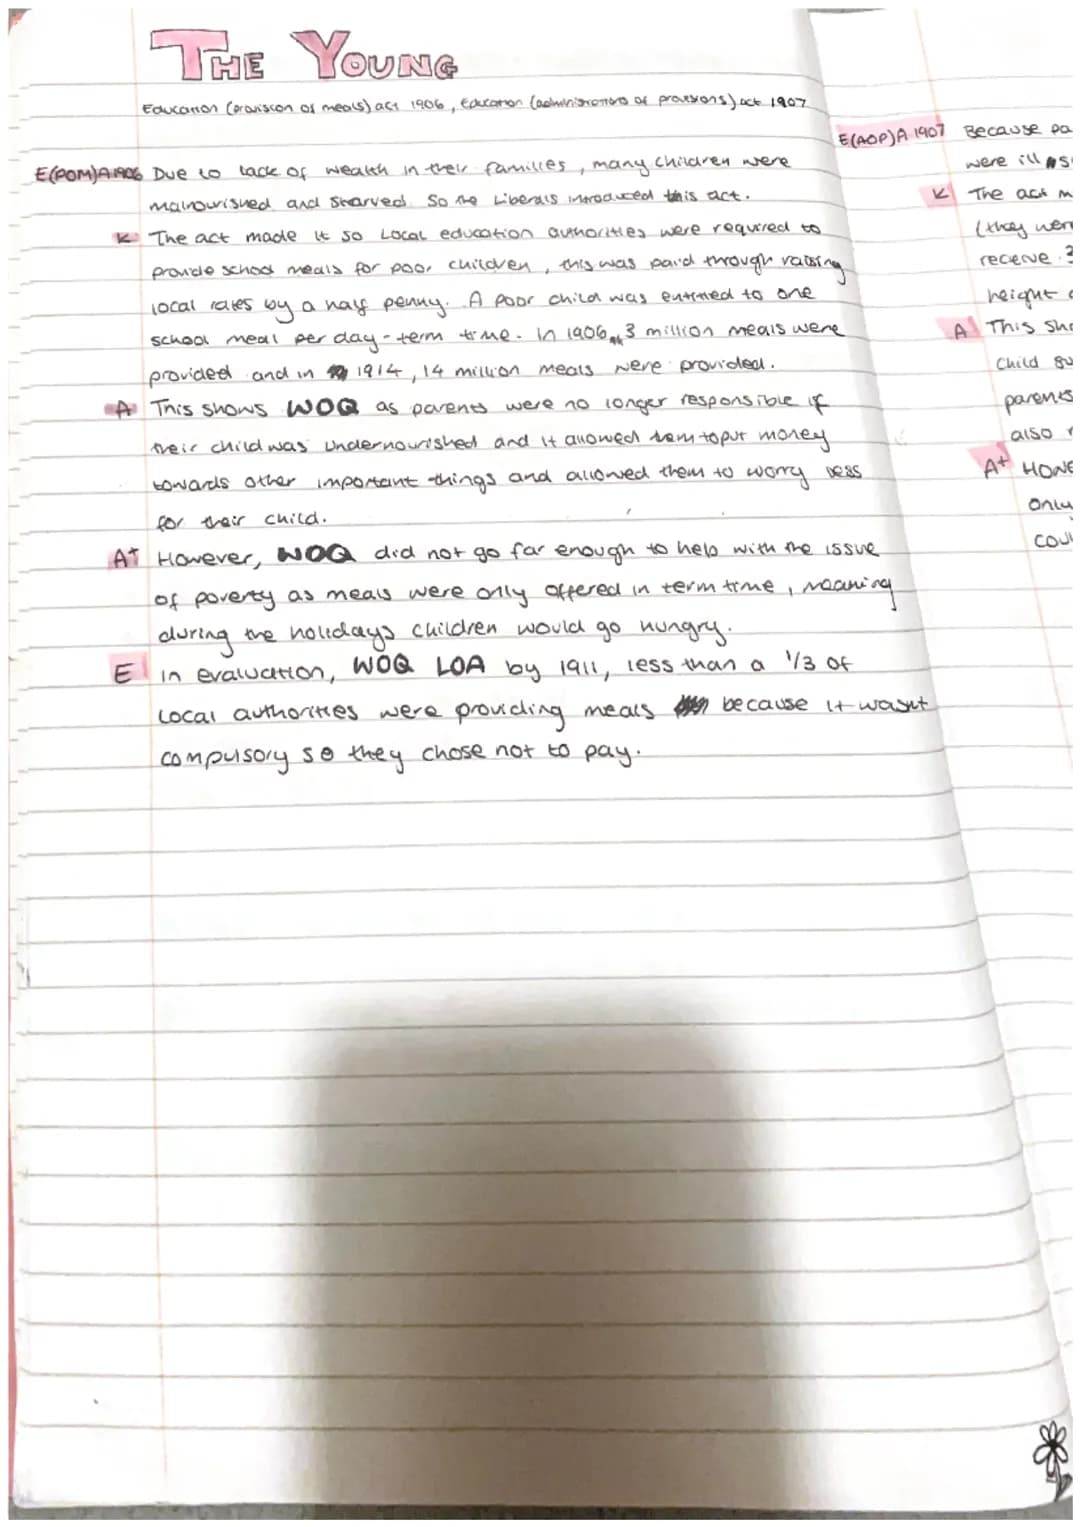 THE YOUNG
Education (provision of meals) act 1906, Education (administrations of provisions) act 1907
E(POM)A 1906 Due to lack of wealth in their families, many children were
malnourished and starved. So the Liberals introduced this act.
K The act made it so Local education authorities were required to
provide school meals for poor children, this was paid through raising
local rates by a half penny. A poor child was entitled to one
school meal per day-term time. In 1906, 3 million meals were
provided and in 1914, 14 million meals were provided.
A This shows WOQ as parents were no longer responsible if
their child was undernourished and it allowed them to put money
towards other important things and allowed them to worry less
for their child.
A+ However, WOQ did not go far enough to help with the issue
of poverty as meals were only offered in term time, meaning
during the holidays children would go hungry.
E In evaluation, WOQ LOA by 1911, less than a 1/3 of
Local authorities were providing meals because it wasnt
compulsory so they chose not to pay.
E(AOP)A 1907 Because pa
were ill
K The act m
(they wer
receive 3
height
A This sho
child su
parents
also
A+ HOWE
only
coul